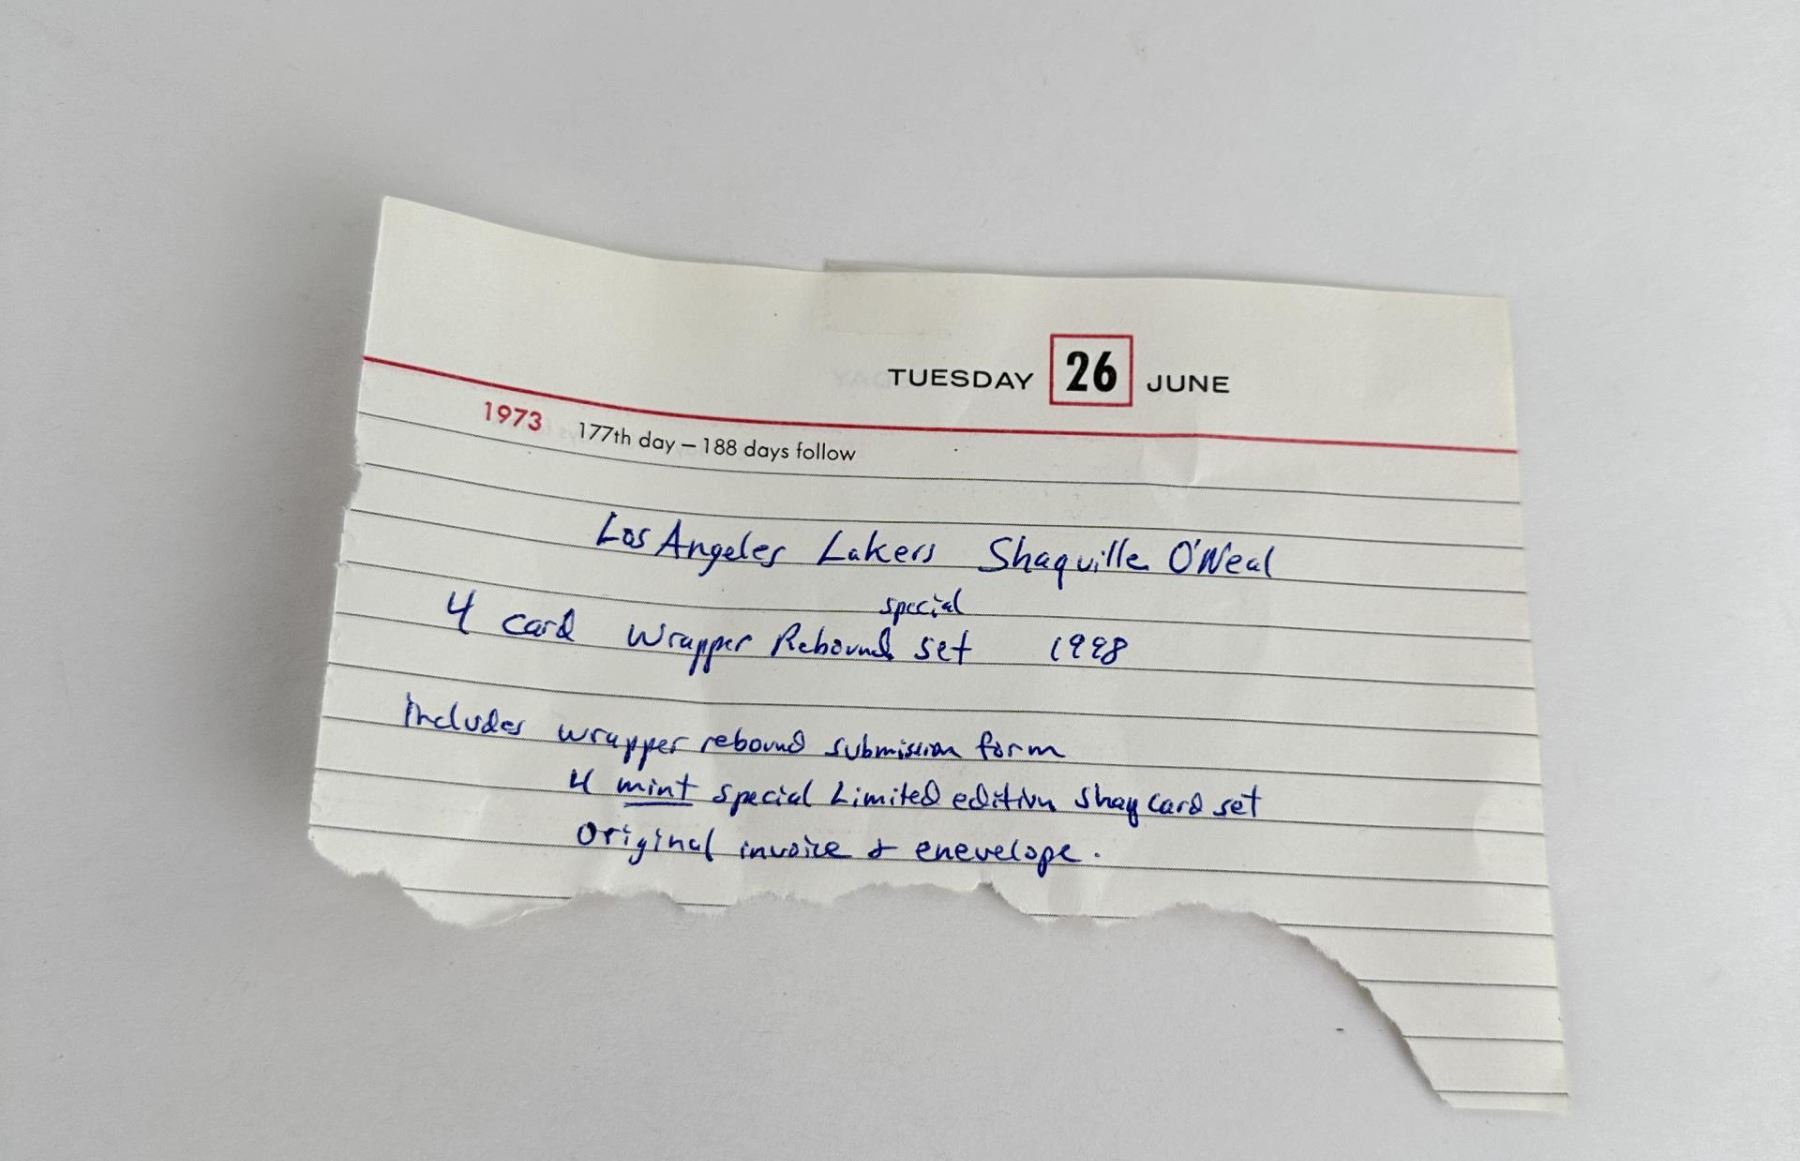 TUESDAY 26 JUNE
1973 177th day – 188 days follow
Los Angeles Lakers Shaquille O'Neal
special
4 card Wrapper Rebound set 1998
Includes wrapper rebound submission form
4 mint special Limited edition Shaq card set
Original invoice & enevelope.